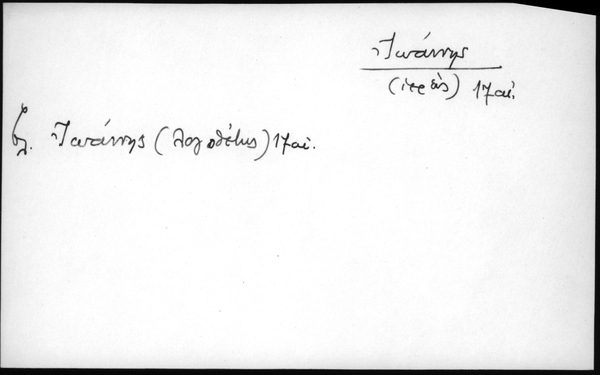 Ἰωάννης
(ἱερεὺς) 17 αἰ.
βλ. Ἰωάννης (λογοθέτης) 17 αἰ.